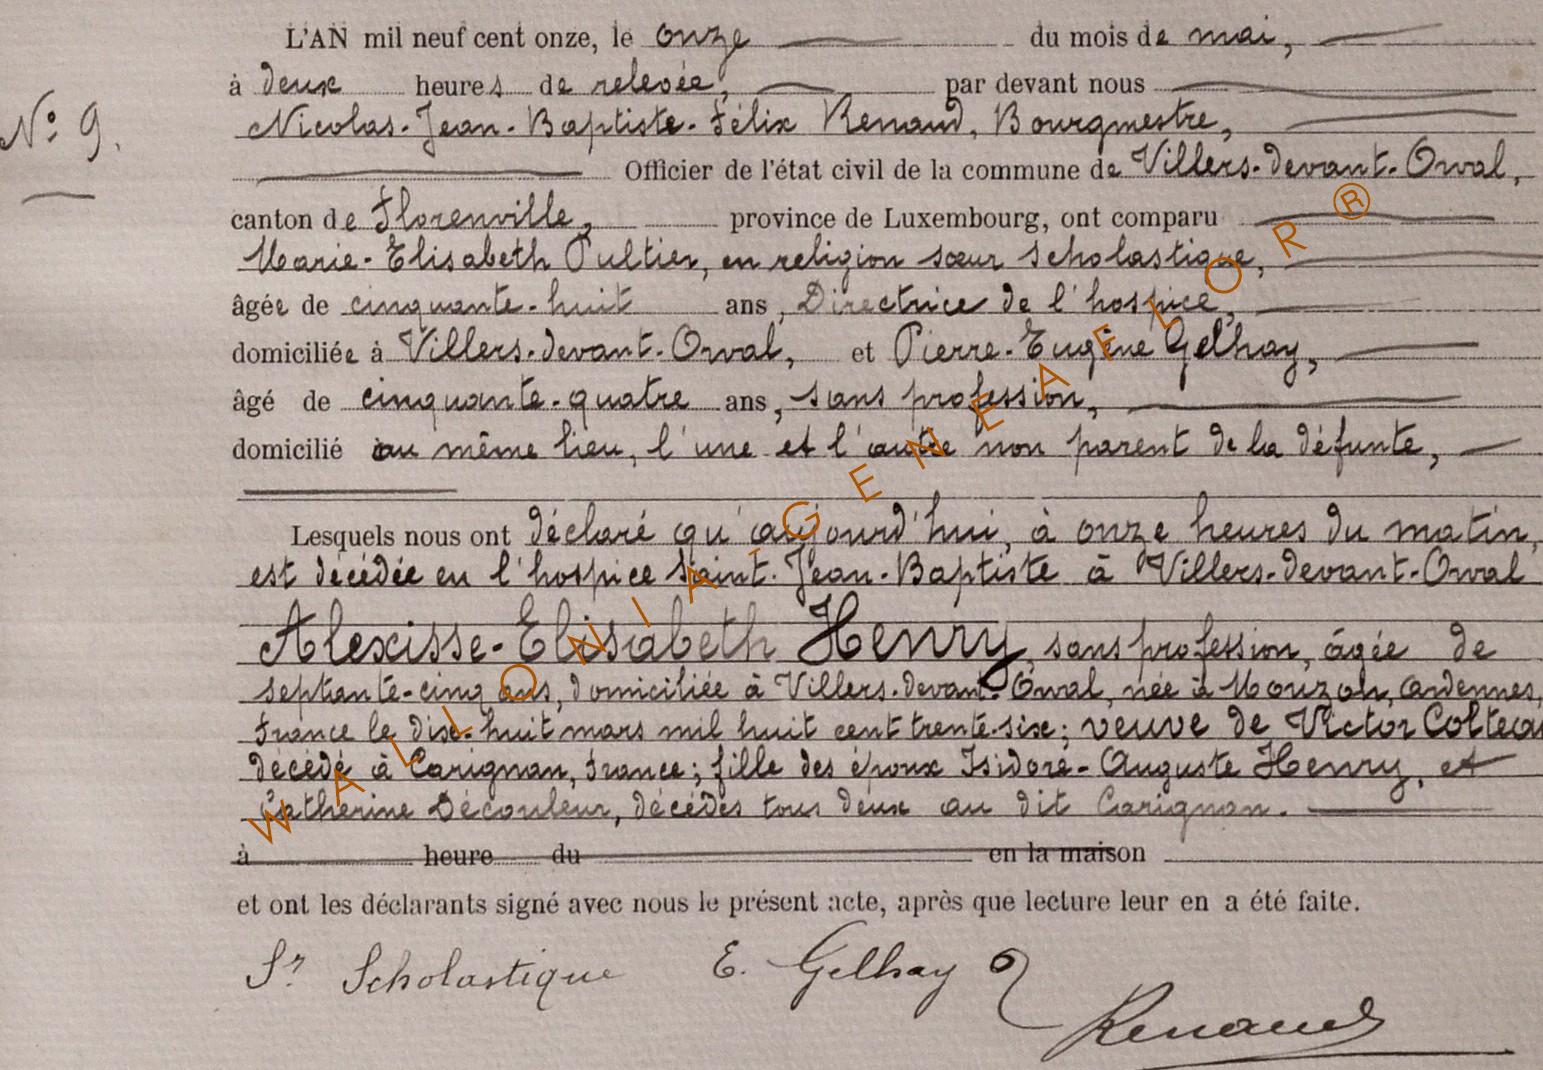 L'AN mil neuf cent onze, le onze du mois de mai,
à deux heures de relevée, par devant nous
Nº 9.
Nicolas-Jean-Baptiste-Félix Renaud, Bourgmestre,
Officier de l'état civil de la commune de Villers-devant-Orval,
canton de Florenville, province de Luxembourg, ont comparu
Marie-Elisabeth Pultier, en religion sœur Scholastique,
âgée de cinquante-huit ans, Directrice de l'hospice,
domiciliée à Villers-devant-Orval, et Pierre-Eugène Gelhay,
âgé de cinquante-quatre ans, sans profession,
domicilié au même lieu, l'une et l'autre non parent de la défunte,
Lesquels nous ont déclaré qu'aujourd'hui, à onze heures du matin,
est décédée en l'hospice Saint-Jean-Baptiste à Villers-devant-Orval
Alexisse-Elisabeth Henry, sans profession, âgée de
septante-cinq ans, domiciliée à Villers-devant-Orval, née à Mouzon, Ardennes,
France le dix-huit mars mil huit cent trente-six; veuve de Victor
décédé à Carignan, France; fille des époux Isidore-Auguste Henry, et
Catherine Découleur, décédés tous deux au dit Carignan.
à heure du en la maison
et ont les déclarants signé avec nous le présent acte, après que lecture leur en a été faite.
Sr Scholastique E. Gelhay
Renaud
WALLONIA-GENEAFELOR®